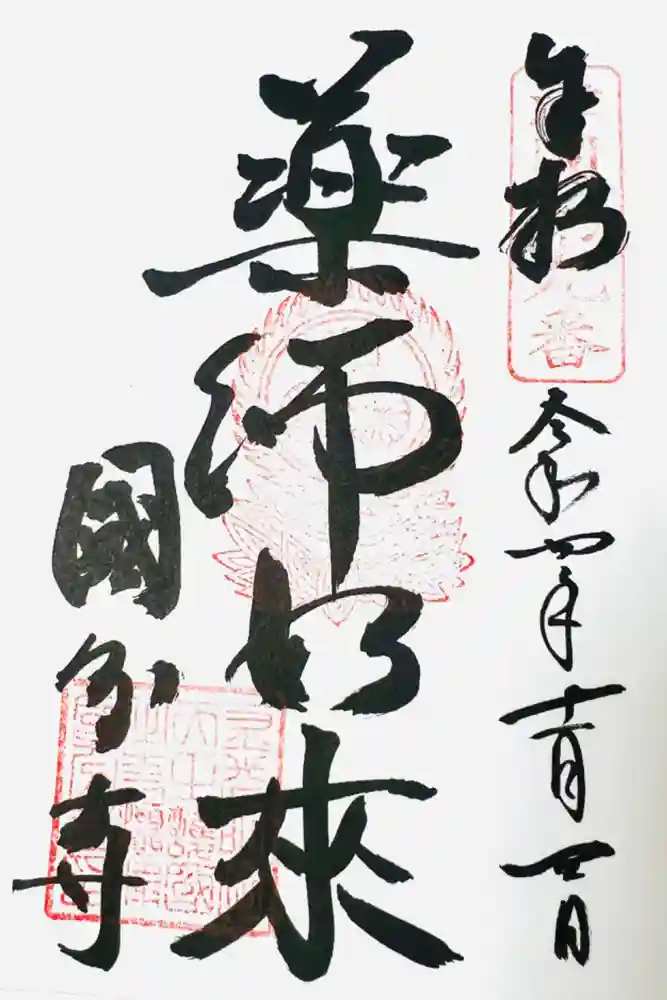 奉拝
九番
令和四年十一月四日
薬師如来
國分寺